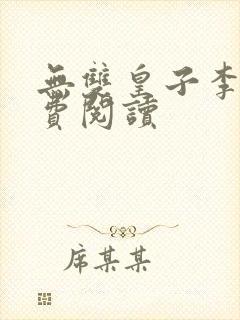 無雙皇子李
費閱讀
席某某